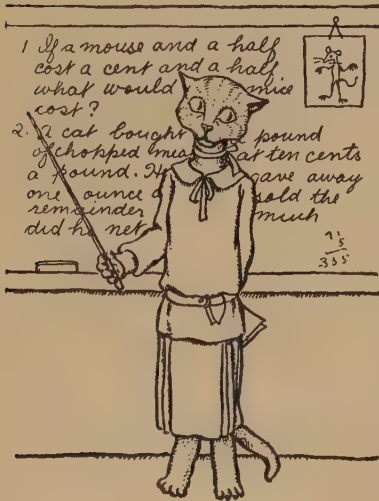 1 If a mouse and a half
cost a cent and a half
what would mice
cost?
2. A cat bought pound
of chopped mea at ten cents
a pound. He gave away
one ounce a sold the
remainder much
did he net
75
5
355